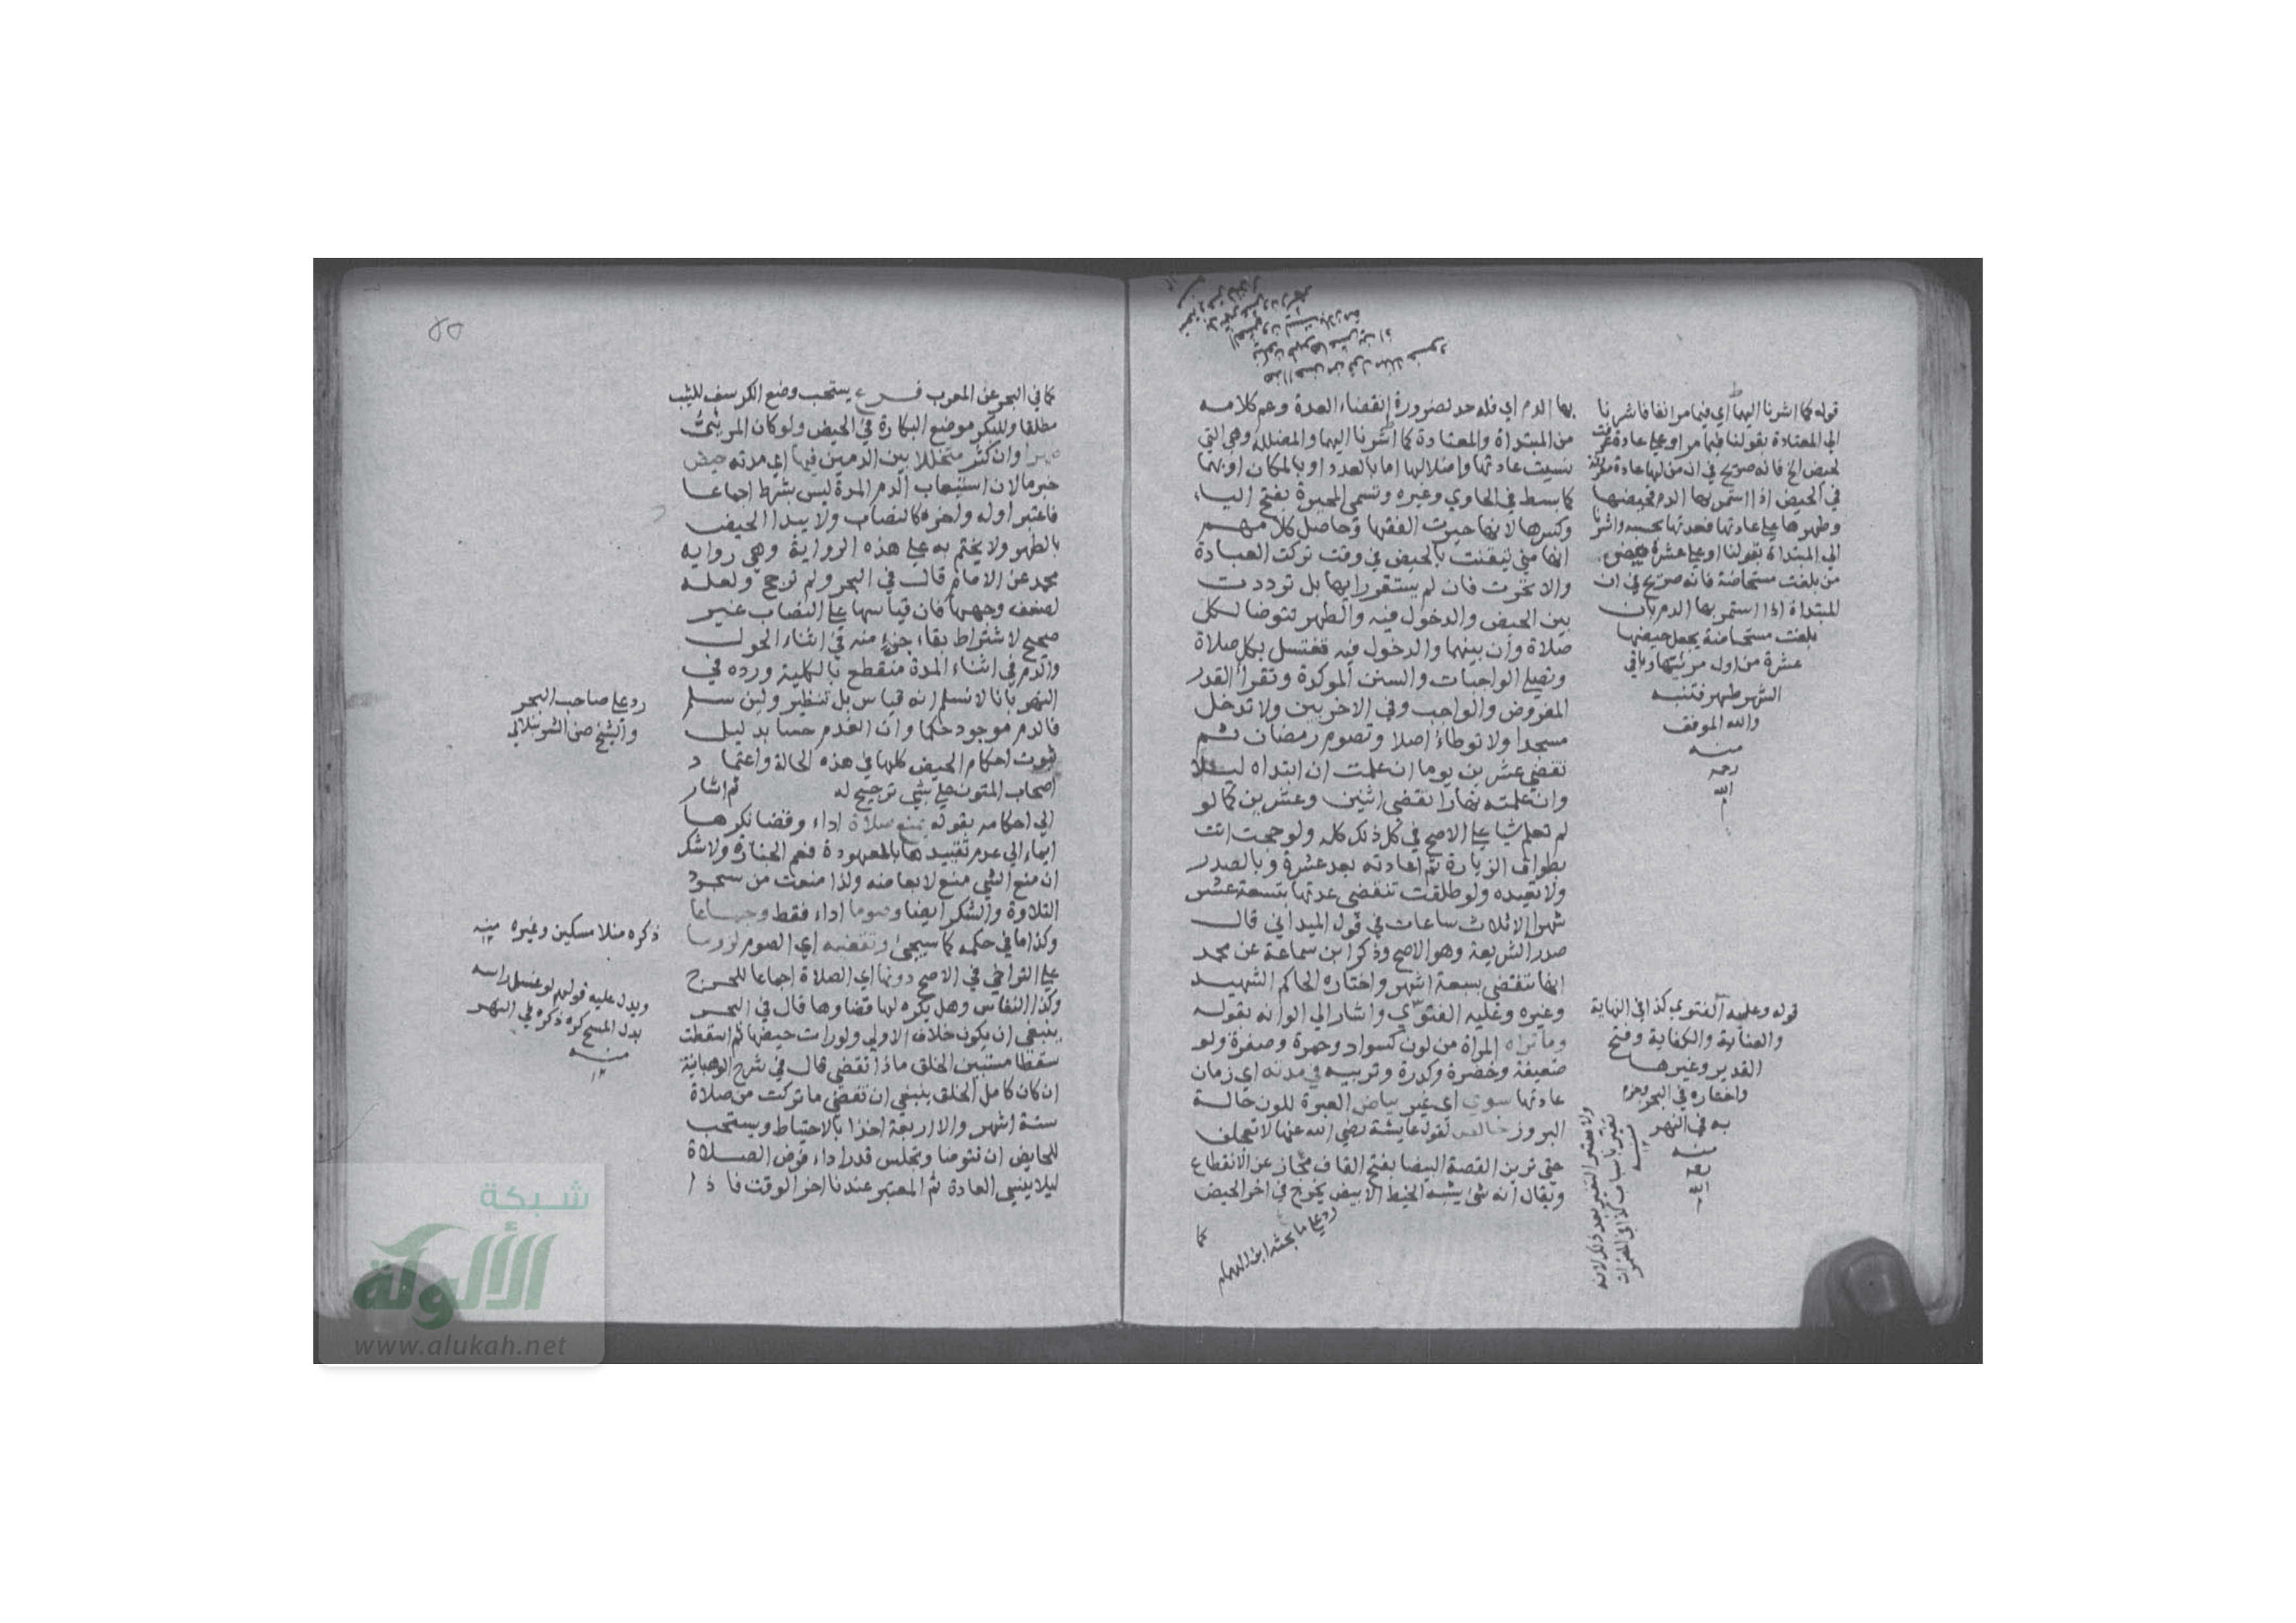 بها الدم اي فله حد لضرورة انقضاء العدة وعم كلامه
من المبتداة والمعتادة كما اشرنا اليها والمضللة وهي التي
نسيت عادتها واضلالها اما بالعدد او بالمكان او بهما
كما بسط في الحاوي وغيره وتسمى المحيرة بفتح الياء
وكسرها لانها حيرت الفقها وحاصل كلامهم
انها متي تيقنت بالحيض في وقت تركت العبادة
والا تحرت فان لم يستقر رايها بل ترددت
بين الحيض والدخول فيه والطهر تتوضا لكل
صلاة وان بينهما والدخول فيه فتغتسل بكل صلاة
وتصلي الواجبات والسنن الموكدة وتقرا القدر
المفروض والواجب وفي الاخريين ولا تدخل
مسجدا ولا توطاء اصلا وتصوم رمضان ثم
تقضي عشرين يوما ان علمت ان ابتداه ليلا
وان علمته نهارا تقضي اثنين وعشرين كما لو
لم تعلم شيا على الاصح في كل ذلك كله ولو حجت اتت
بطواف الزيارة ثم اعادته بعد عشرة وبالصدر
ولا تعيده ولو طلقت تنقضي عدتها بتسعة عشر
شهرا الا ثلاث ساعات في قول الميداني قال
صدر الشريعة وهو الاصح وذكر ابن سماعة عن محمد
انها تنقضي بسبعة اشهر واختاره الحاكم الشهيد
وغيره وعليه الفتوي واشار الي الوانه بقوله
وما تراه المراة من لون كسواد وحمرة وصفرة ولو
ضعيفة وخضرة وكدرة وتربيه في مدته اي زمان
عادتها سوي اي غير بياض العبرة للون حالة
البروز خالص لقول عايشة رضي الله عنها لا تعجلن
حتي ترين القصة البيضا بفتح القاف مجاز عن الانقطاع
ويقال انه شئ يشبه الخيط الابيض يخرج في اخر الحيض
كما
رد على ما بحثه ابن الهمام
قوله كما اشرنا اليها اي فيما مر انفا فاشرنا
الي المعتادة بقولنا فيما مر او على عادة عرفت
لحيض الخ فانه صريح في ان من لها عادة معروفة
في الحيض اذا استمر بها الدم فحيضها
وطهرها على عادتها فعدتها بحسبه واشرنا
الي المبتداة بقولنا او على عشرة حيض
من بلغت مستحاضة فانه صريح في ان
المبتداة اذا استمر بها الدم بان
بلغت مستحاضة يجعل حيضها
عشرة من اول مرئيتها وباقي
الشهر طهر فتنبه
والله الموفق
منه
رحمه
الله
قوله وعليه الفتوي كذا في النهاية
والعناية والكفاية وفتح
القدير وغيرها
واختاره في البحر وجزم
به في النهر
منه
رحمه
الله
ولا معتبر التغير بعد ذلك لانه
يتغير باسباب كذا في المضمرات
منه
٥٥
كما في البحر عن المعرب فرع يستحب وضع الكرسف للثيب
مطلقا وللبكر موضع البكارة في الحيض ولو كان المرئي
طهرا وان كثر متخللا بين الدمين فيها اي مدته حيض
خبر ما لان استيعاب الدم المدة ليس بشرط اجماعا
فاعتبر اوله واخره كالنصاب ولا يبدا الحيض
بالطهر ولا يختم به على هذه الرواية وهي رواية
محمد عن الامام قال في البحر ولم ترجح ولعله
لضعف وجهها فان قياسها على النصاب غير
صحيح لاشتراط بقاء جزء منه في اثناء الحول
والدم في اثناء المدة منقطع بالكلية ورده في
النهر بانا لا نسلم انه قياس بل تنظير ولين سلم
فالدم موجود حكما وان انعدم حسا بدليل
ثبوت احكام الحيض كلها في هذه الحالة واعتماد
اصحاب المتون على شي ترجيح له ثم اشار
الي احكامه بقوله يمنع صلاة اداء وقضا نكرها
ايماء الي عدم تقييدها بالمعهودة فعم الجنازة ولا شك
ان منع الشي منع لابعاضه ولذا منعت من سجود
التلاوة والشكر ايضا وصوما اداء فقط وجماعا
وكذا ما في حكمه كما سيجئ وتقضيه اي الصوم لزوما
على التراخي في الاصح دونها اي الصلاة اجماعا للحرج
وكذا النفاس وهل يكره لها قضاوها قال في البحر
ينبغي ان يكون خلاف الاولي ولو رات حيضها ثم اسقطت
سقطا مستبين الخلق ماذا تقضي قال في شرح الوهبانية
ان كان كامل الخلق ينبغي ان تقضي ما تركت من صلاة
ستة اشهر والا اربعة اخذا بالاحتياط ويستحب
للحايض ان تتوضا وتجلس قدر اداء فرض الصلاة
ليلا ينسي العادة ثم المعتبر عندنا اخر الوقت فاذا
رد على صاحب البحر
والشيخ حسن الشرنبلالي
ذكره منلا مسكين وغيره منه
ويدل عليه قولهم لو غسل راسه
بدل المسح كره ذكره في النهر
منه
شبكة
الألوكة
www.alukah.net